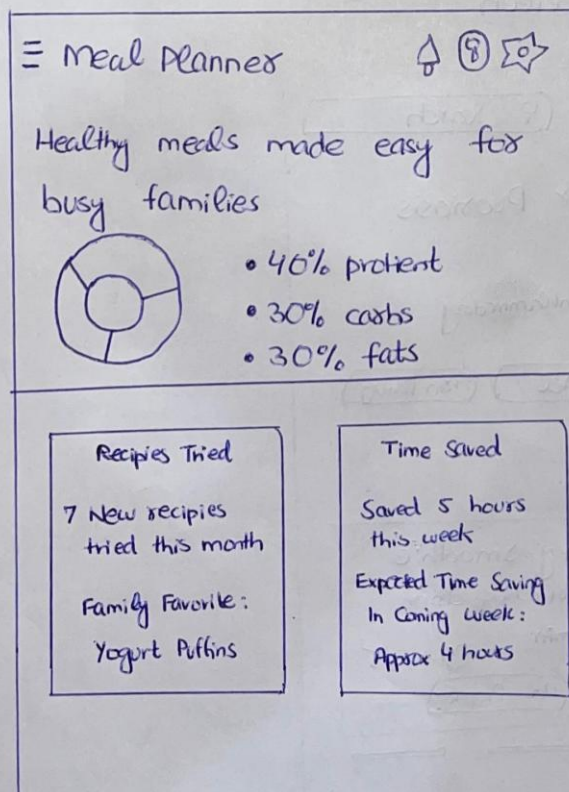 Meal Planner
Healthy meals made easy for
busy families
• 40% protient
• 30% carbs
• 30% fats
Recipies Tried
7 New recipies
tried this month
Family Favorite:
Yogurt Puffins
Time Saved
Saved 5 hours
this week
Expected Time Saving
In Coming week:
Approx 4 hours